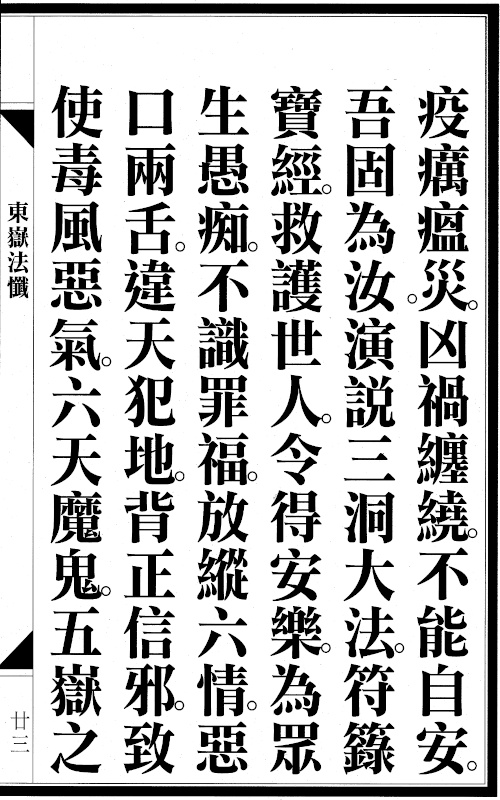 疫癘瘟災。凶禍纏繞。不能自安。
吾固為汝。演説三洞大法。符籙
寶經。救護世人。令得安樂。為眾
生愚痴。不識罪福。放縱六情。惡
口兩舌。違天犯地。背正信邪。致
使毒風惡氣。六天魔鬼。五嶽之
東嶽法懺
廿三